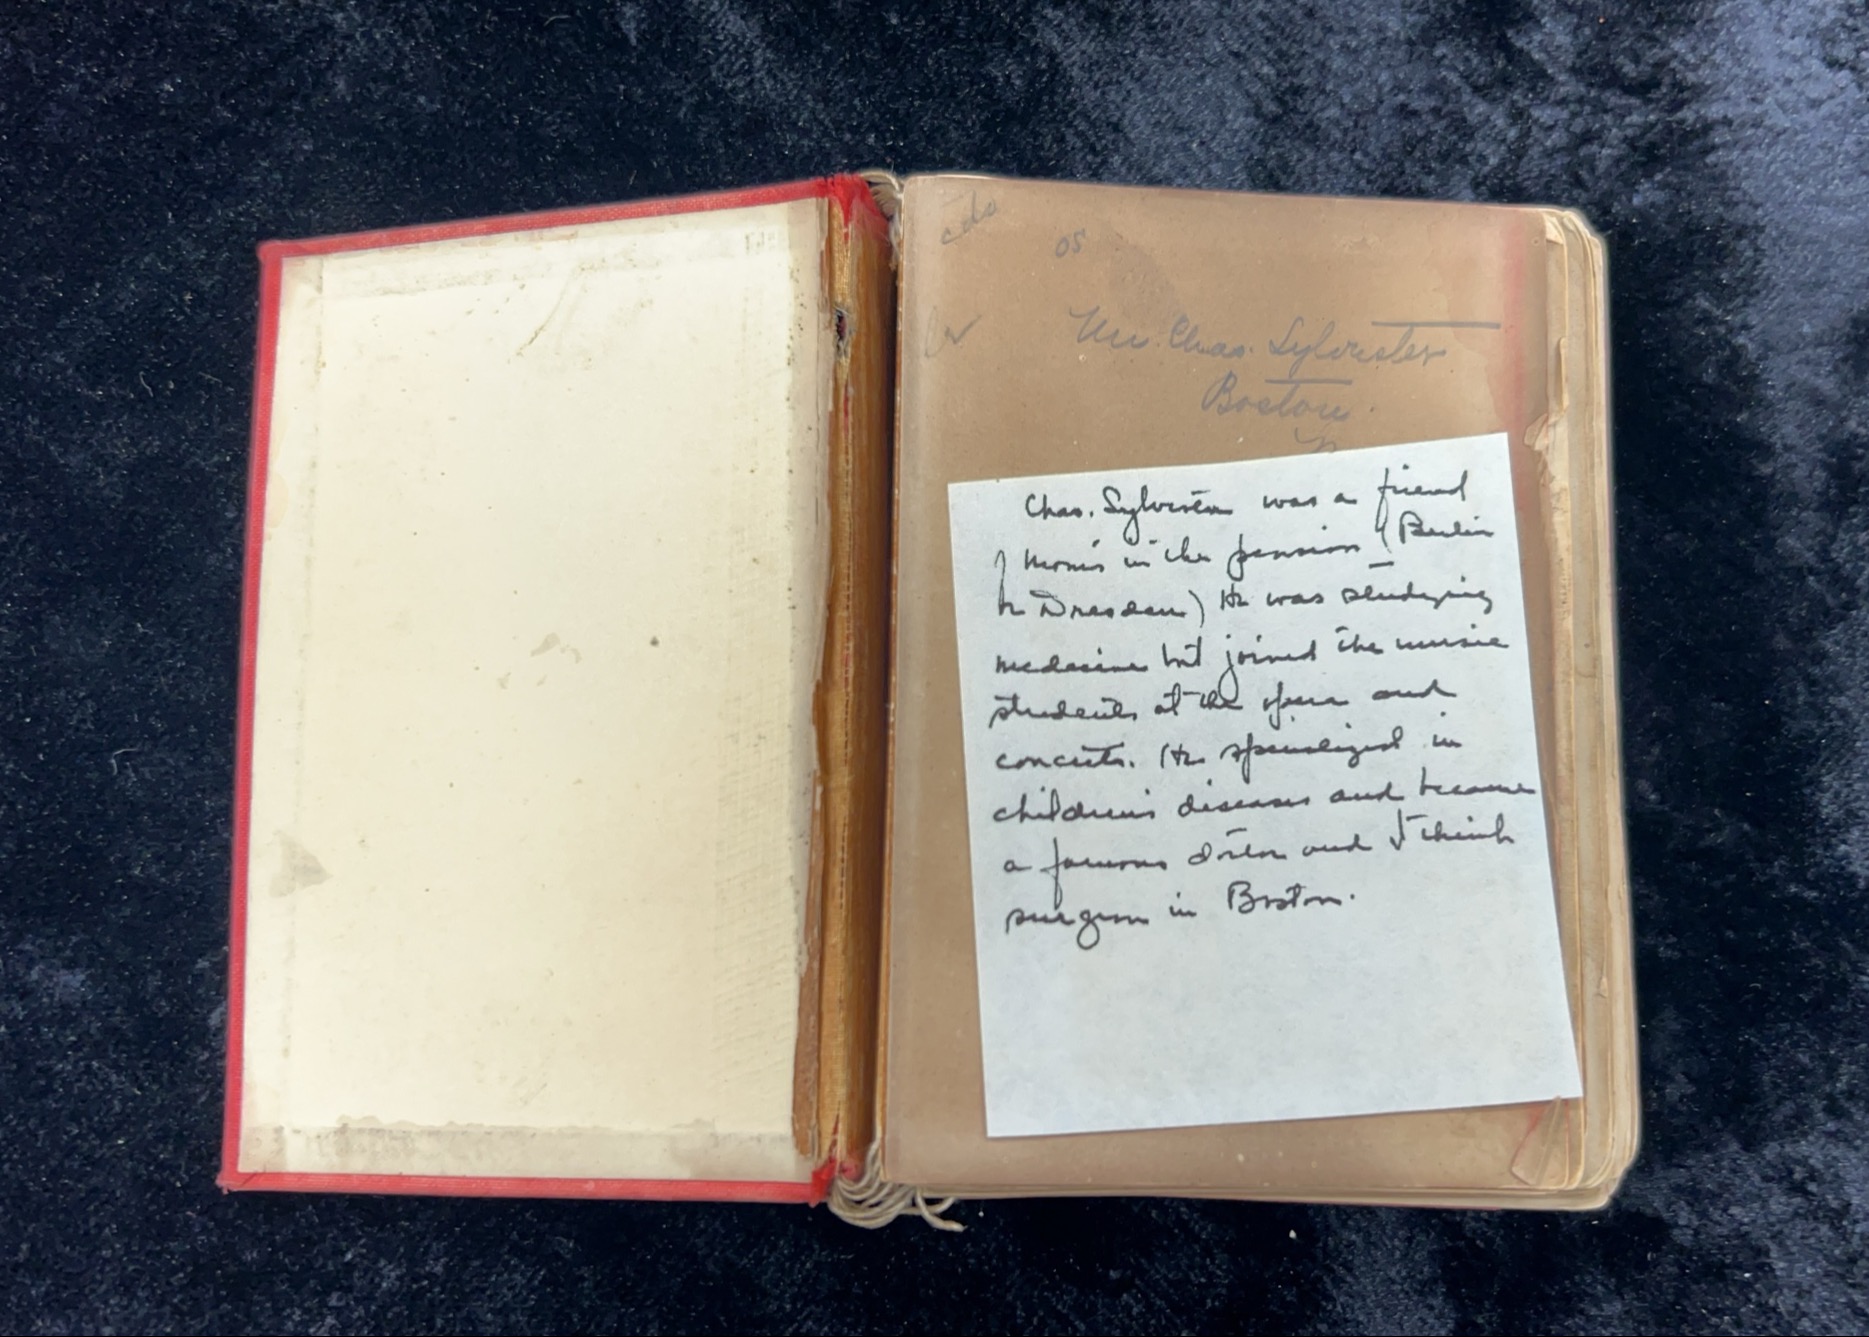 cds
os
Mr. Chas. Sylvester
Boston.
Chas. Sylvester was a friend
of Mom's in the pension (Berlin
or Dresden) He was studying
medecine but joined the music
students at the opera and
concerts. He specialized in
children's diseases and became
a famous doctor and I think
surgeon in Boston.